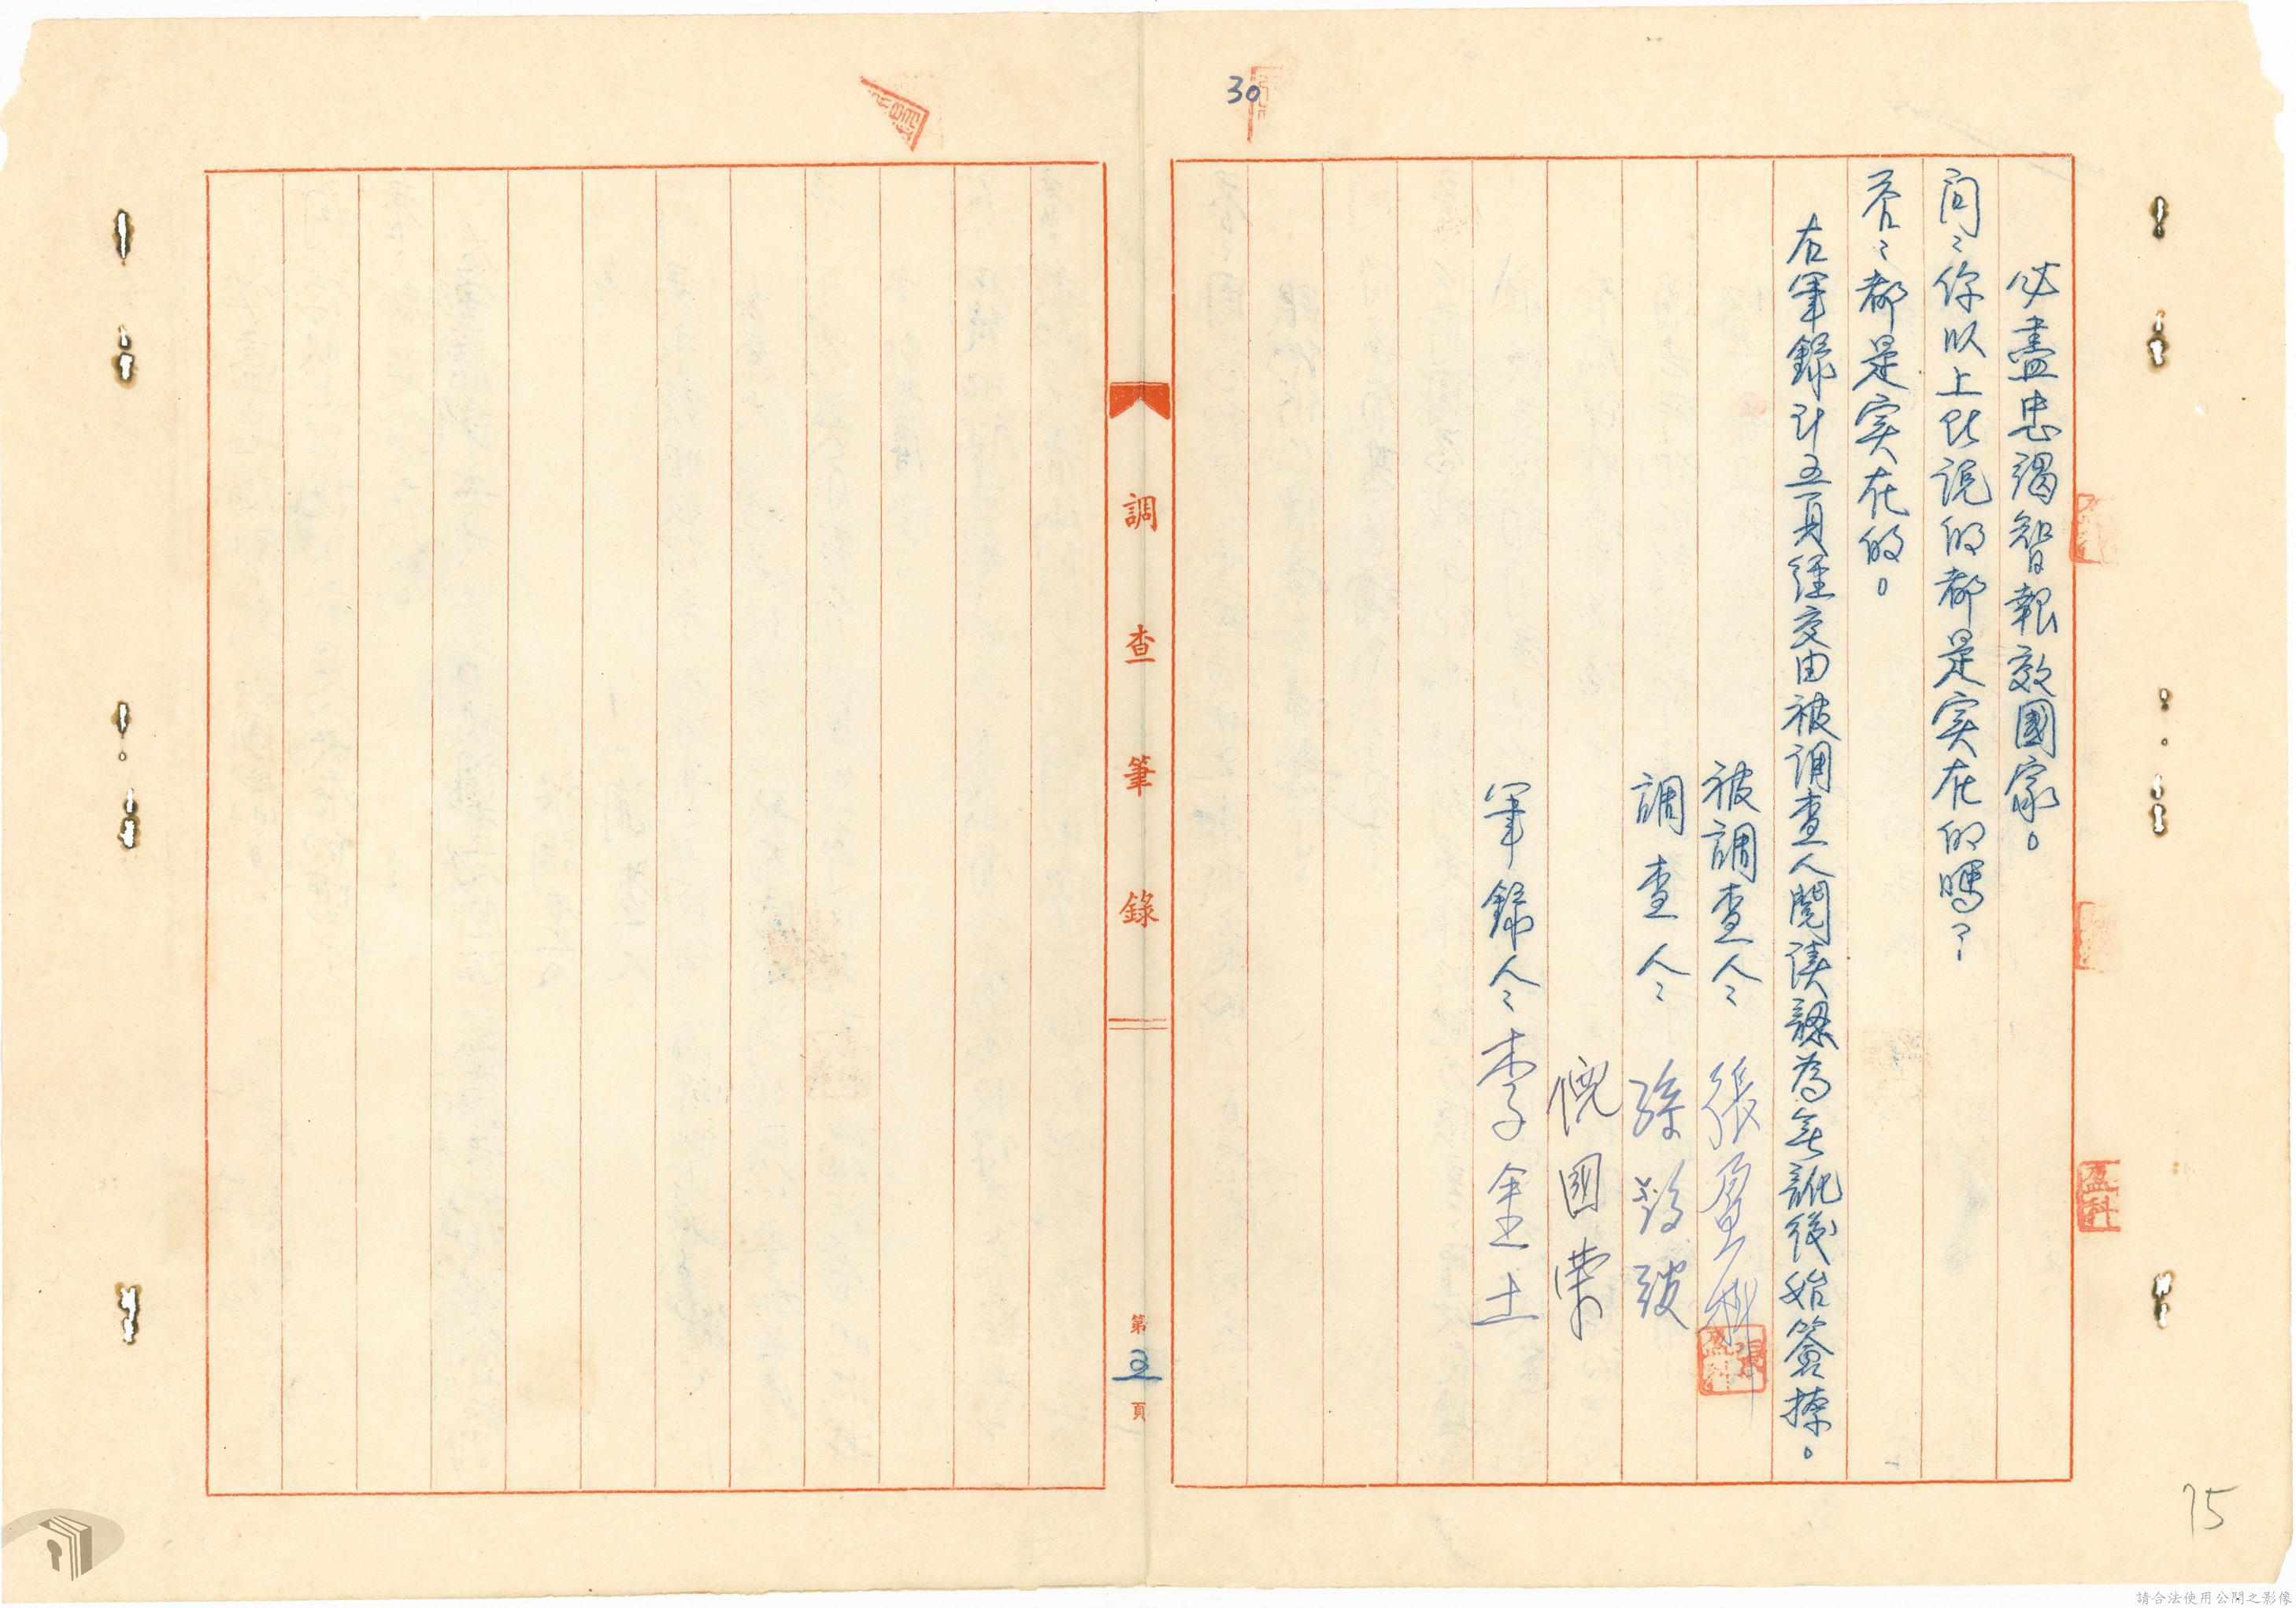 30
必盡忠竭智報效國家。
問：你以上所說的都是实在的嗎？
答：都是实在的。
右筆録計五頁經交由被調查人閱讀認為無訛後始簽捺。
被調查人：張盈科
調查人：孫
倪國荣
筆録人：李金土
盈科
調查筆錄
第五頁
75
請合法使用公開之影像